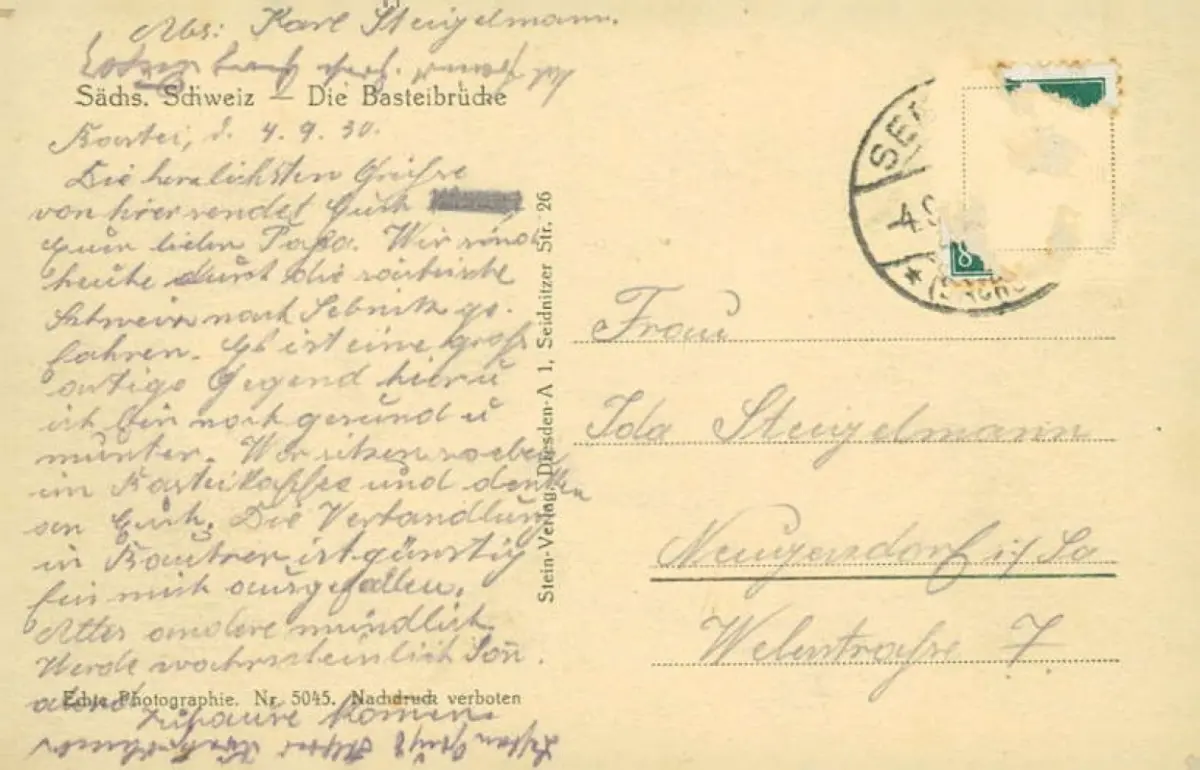 Abs: Karl Stengelmann.
Sächs. Schweiz — Die Basteibrücke
Bastei, d. 4.9.30.
Die herzlichsten Grüße
von hier sendet Euch
Euer lieber Papa. Wir sind
heute durch die sächsische
Schweiz nach Sebnitz ge-
fahren. Es ist eine groß
artige Gegend hier u
ich bin noch gesund u
munter. Wir sitzen soeben
im Basteikaffee und denken
an Euch. Die Verhandlung
in Bautzen ist günstig
für mich ausgefallen.
Alles andere mündlich
Werde wahrscheinlich Sonn.
abend
Echte Photographie. Nr. 5045. Nachdruck verboten
zuhause kommen.
Stein-Verlag, Dresden-A 1, Seidnitzer Str. 26
SE
-4.9
8
Frau
Ida Stengelmann
Neugersdorf i/Sa
Weberstraße 7